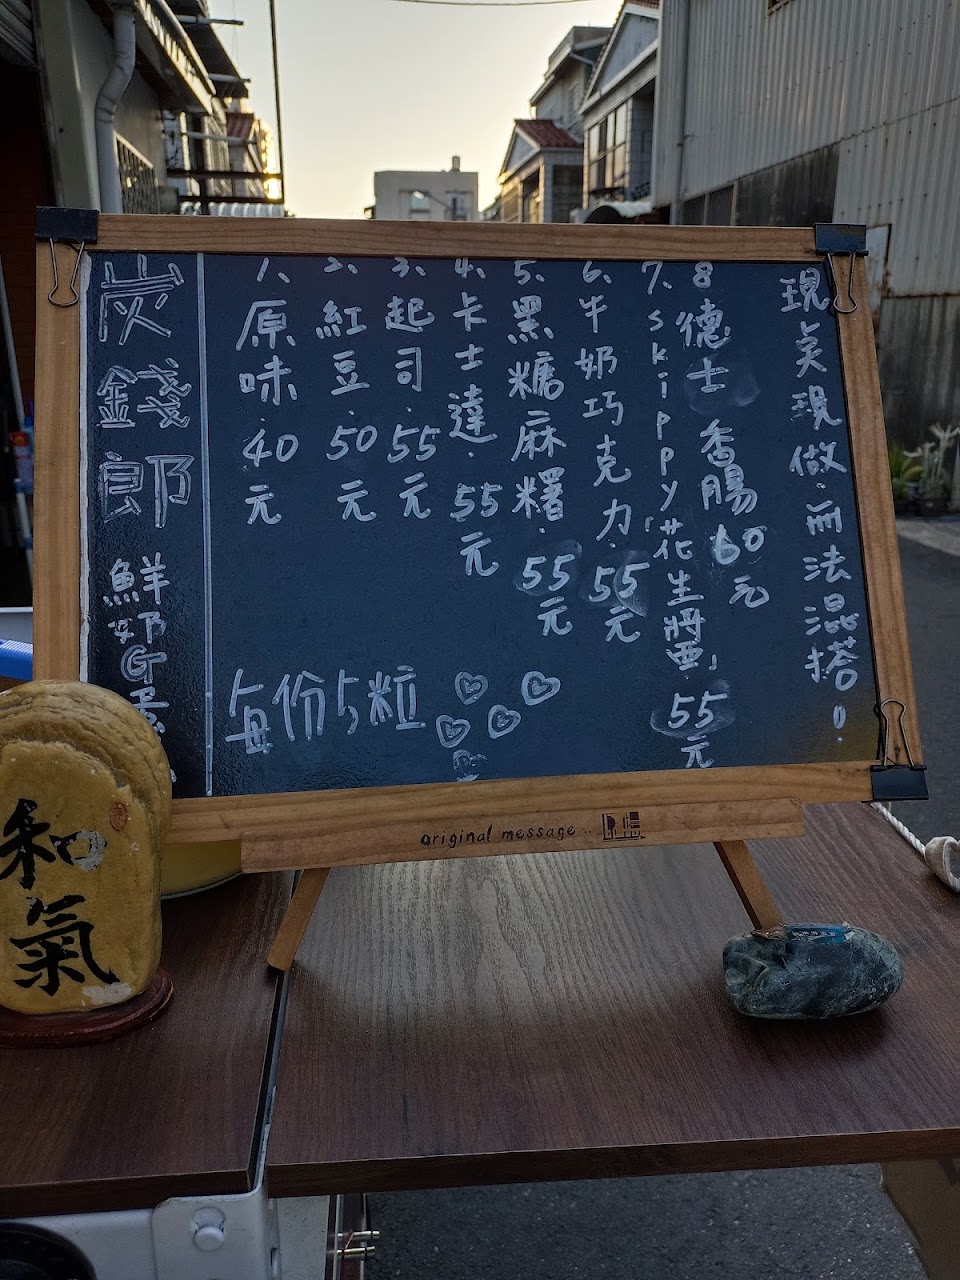 炭錢郎 鮮奶G蛋
1、原味.40元
2、紅豆.50元
3、起司.55元
4、卡士達.55元
5、黑糖麻糬.55元
6、牛奶巧克力.55元
7、skippy「花生將」55元
8 德士香腸60元
現點現做.無法混搭。
每份5粒
original message..
和氣